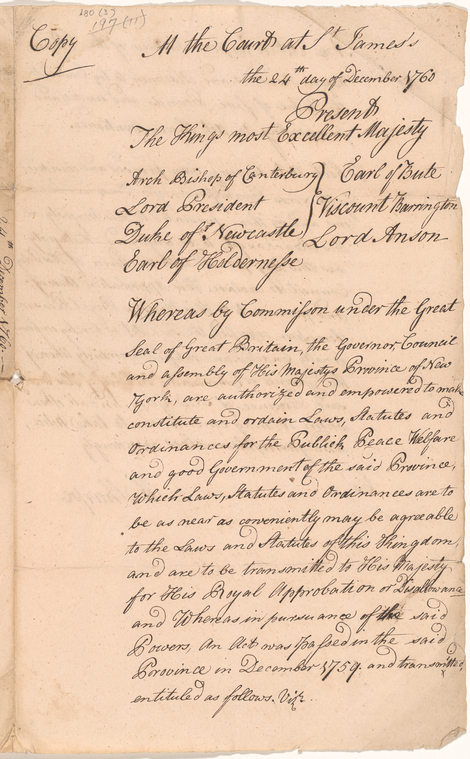 180 (2)
197 (11)
Copy
At the Court at St. James's
the 24th day of December 1760
Present
The Kings most Excellent Majesty
Arch Bishop of Canterbury Earl of Bute
Lord President Viscount Barrington
Duke of Newcastle Lord Anson
Earl of Holdernesse
Whereas by Commission under the Great
Seal of Great Britain, the Governor, Council
and assembly of His Majestys Province of New
York, are authorized and empowered to make
constitute and ordain Laws, Statutes and
Ordinances for the Publick Peace Welfare
and good Government of the said Province,
Which Laws, Statutes and Ordinances are to
be as near as conveniently may be agreeable
to the Laws and Statutes of this Kingdom,
and are to be transmitted to His Majesty
for His Royal Approbation or Disallowance
and Whereas in pursuance of the said
Powers, an Act was passed in the said
Porovince in December 1759. and transmitted,
entituled as follows. Vizt.
December 1760.